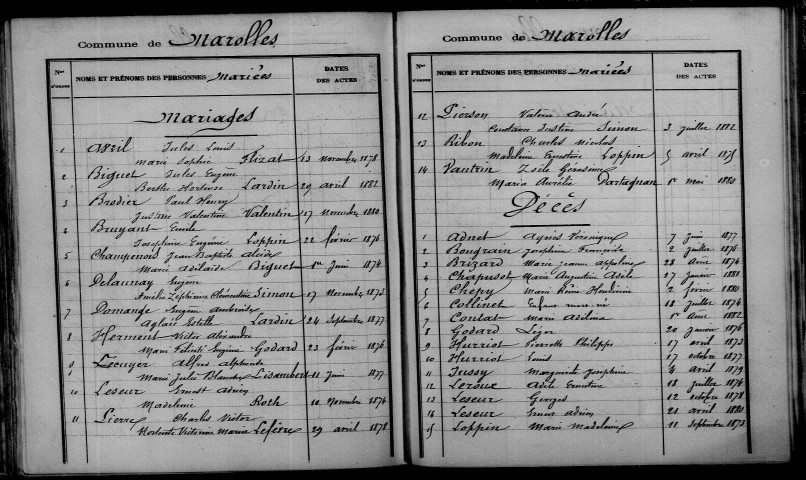 Commune de Marolles
Nos D'ORDRE NOMS ET PRÉNOMS DES PERSONNES Mariées DATES DES ACTES
Mariages
1 Jules Louis
Marie Sophie Flizat 13 novembre 1878
2 Biguet Jules Eugène
Berthe Hortense Lardin 29 avril 1882
3 Brodier Paul Henry
Justine Valentine Valentin 17 novembre 1880
4 Bruyant Emile
Josephine Eugénie Loppin 22 février 1876
5 Champenois Jean Baptiste Alcide
Marie Adelaide Biguet 1er juin 1874
6 Delaunay Eugene
Amélie Zephirine Clémentine Simon 17 novembre 1873
7 Domange Eugène Ambroise
Aglaée Estelle Lardin 24 septembre 1877
8 Herment Victor Alexandre
Marie Felicité Eugénie Godard 23 février 1876
9 Alfred Alphonse
Marie Julie Blanche Lisambert 11 juin 1877
10 Leseur Ernest Adrien
Madeleine Roth 10 novembre 1874
11 Pierre Charles Victor
Hortense Victorine Maria Lefèvre 29 avril 1878
Commune de Marolles
Nos D'ORDRE NOMS ET PRÉNOMS DES PERSONNES Mariées DATES DES ACTES
12 Pierson André
Constance Justine Simon 3 juillet 1882
13 Ribon Charles Nicolas
Madeleine Ernestine Loppin 5 avril 1875
14 Vautrin Zoïle Gérasime
Maria Aurélie Partagnan 1er mai 1880
Décès
1 Adnet Agnès Véronique 7 juin 1877
2 Bongrain Joséphine Françoise 2 juillet 1876
3 Brizard Marie Jeanne Appoline 28 1874
4 Chapusot Marie Augustine Adèle 17 janvier 1881
5 Chépy Marie Reine 2 février 1880
6 Collinet Enfant mort né 18 juillet 1874
7 Contat Marie Adelina 1er 1882
8 Godard Léger 20 janvier 1876
9 Hurriot Pierrette Philippe 17 avril 1873
10 Hurriot Louis 17 octobre 1877
11 Jussy Marguerite Josephine 4 avril 1879
12 Leroux Adèle Ernestine 18 juillet 1874
13 Leseur Georges 12 octobre 1878
14 Leseur Ernest Adrien 21 avril 1880
15 Loppin Marie Madeleine 11 septembre 1873